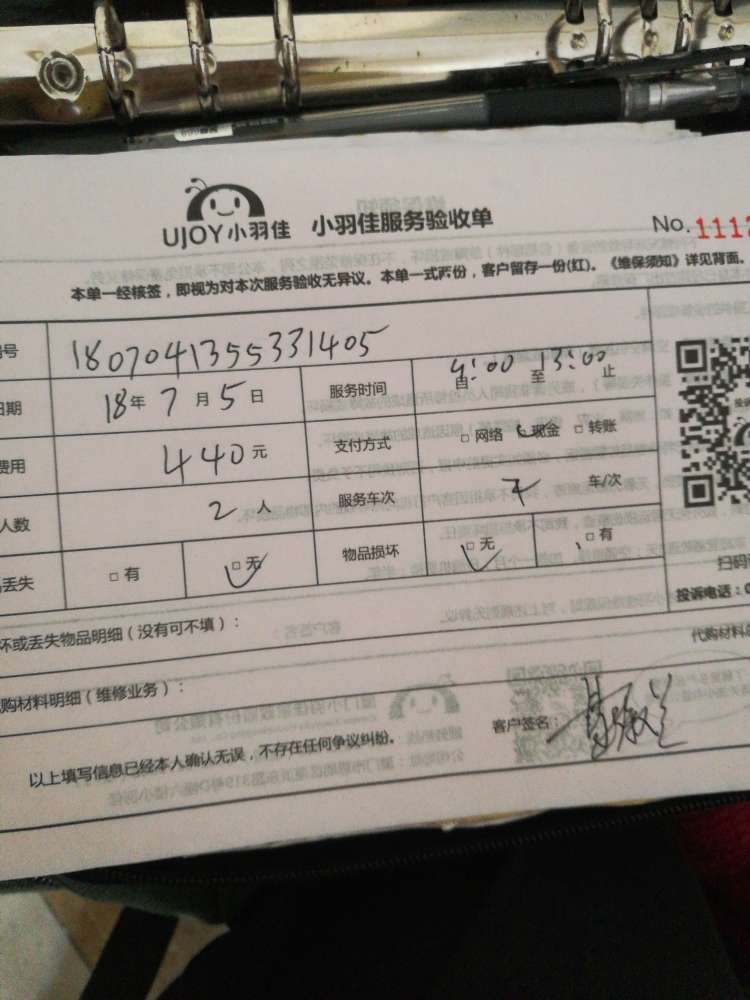 UJOY小羽佳 小羽佳服务验收单 No.1112
本单一经核签，即视为对本次服务验收无异议。本单一式两份，客户留存一份(红)。《维保须知》详见背面。
号 1807041355331405
日期 18年7月5日 服务时间 自9:00至13:00止
费用 440元 支付方式 □网络 □现金 □转账
人数 2人 服务车次 车/次
丢失 □有 □无 物品损坏 □无 □有
扫码
投诉电话：0
坏或丢失物品明细（没有可不填）：
代购材料总
购材料明细（维修业务）：
客户签名：
以上填写信息已经本人确认无误，不存在任何争议纠纷。